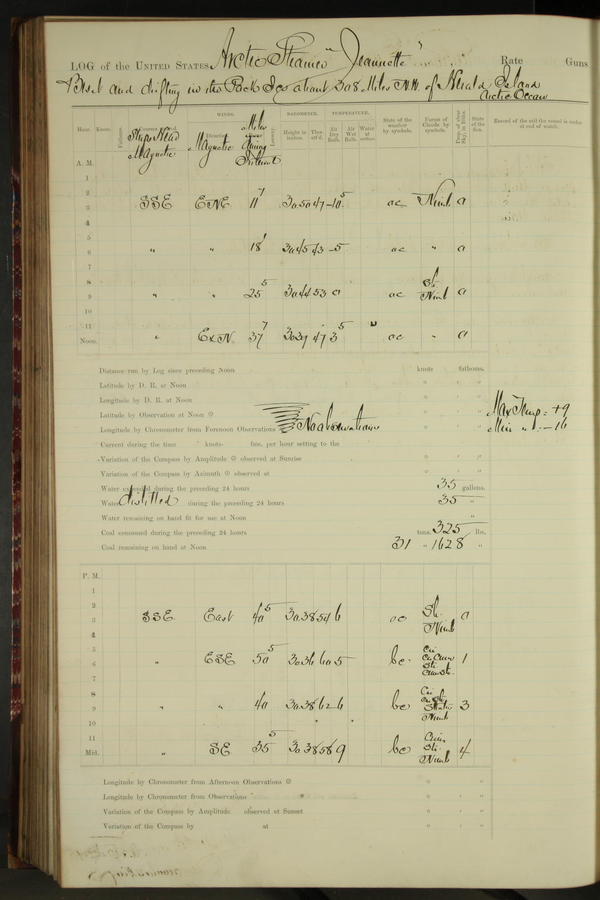 LOG of the United States Arctic Steamer "Jeannette" Rate Guns
Beset and drifting in the Pack Ice about 308 Miles N.W. of Herald Island
Arctic Ocean
Hour. Knots. Fathoms. Ship's Head Magnetic WINDS. Direction Magnetic Miles during Leeway. BAROMETER. Height in inches. Ther. att'd. TEMPERATURE. Air Dry Bulb. Air Wet Bulb. Water at surface. State of the weather by symbols. Forms of Clouds by symbols. Prop. of clear Sky, in 10ths. State of the Sea. Record of the sail the vessel is under at end of watch.
A. M.
1
2
3 SSE ENE 11 7 30.50 47 -10 5 oc Nimb 0
4
5
6 " " 18 1 30.45 43 -5 oc " 0
7
8
9 " " 25 5 30.44 53 0 oc Str. Nimb 0
10
11
Noon. " E x N. 37 7 30.37 47 3 5 oc " 0
Distance run by Log since preceding Noon knots fathoms.
Latitude by D. R. at Noon
Longitude by D. R. at Noon
Latitude by Observation at Noon Max Temp = +9
Longitude by Chronometer from Forenoon Observations No observations Min " = -16
Current during the time knots fms. per hour setting to the
Variation of the Compass by Amplitude observed at Sunrise
Variation of the Compass by Azimuth observed at
Water expended during the preceding 24 hours 35 gallons.
Water distilled during the preceding 24 hours 35 "
Water remaining on hand fit for use at Noon "
Coal consumed during the preceding 24 hours tons. 325 lbs.
Coal remaining on hand at Noon 31 " 1628 "
P. M.
1
2
3 SSE East 40 5 30.38 54 6 oc Str. Nimb 0
4
5
6 " ESE 50 5 30.36 60 5 bc Cir. Cir. Cum Str. Cum. St. 1
7
8
9 " " 40 30.38 62 -6 bc Nimb 3
10
11
Mid. " SE 35 5 30.38 58 9 bc Str. Nimb 4
Longitude by Chronometer from Afternoon Observations
Longitude by Chronometer from Observations
Variation of the Compass by Amplitude observed at Sunset
Variation of the Compass by at